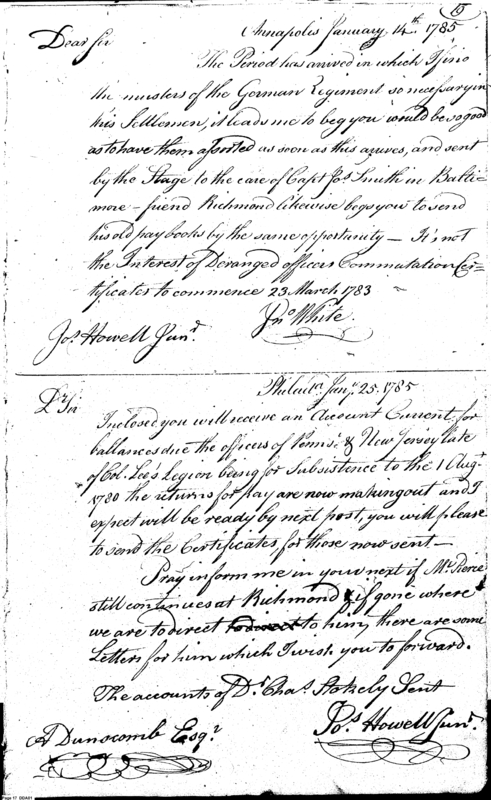 19
Annapolis January 14th 1785
Dear Sir
The Period has arrived in which I find
the musters of the German Regiment so necessary in
this Settlemen, it leads me to beg you would be so good
as to have them assorted as soon as this arrives, and sent
by the Stage to the care of Capt Jos. Smith in Balti
more - friend Richmond likewise begs you to send
his old pay books by the same opportunity - It's not
the Interest of Deranged officers Commutation Cer=
tificates to commence 23 March 1783
Jno White
Jos. Howell Junr.
Philada. Jany. 25. 1785
Dr Sir
Inclosed you will receive an Account Current for
ballances due the officers of Penns. & New Jersey late
of Col. Lee's Legion being for Subsistence to the 1 Augt
1780 the returns for pay are now making out and I
expect will be ready by next post, you will please
to send the Certificates, for those now sent -
Pray inform me in your next if Mr. Pierce
still continues at Richmond & if gone where
we are to direct to him, there are some
Letters for him which I wish you to forward.
The accounts of Dr. Chas. Stokely Sent
A Dunscomb Esqr.
Jos. Howell Junr.
Page 17 DDA01